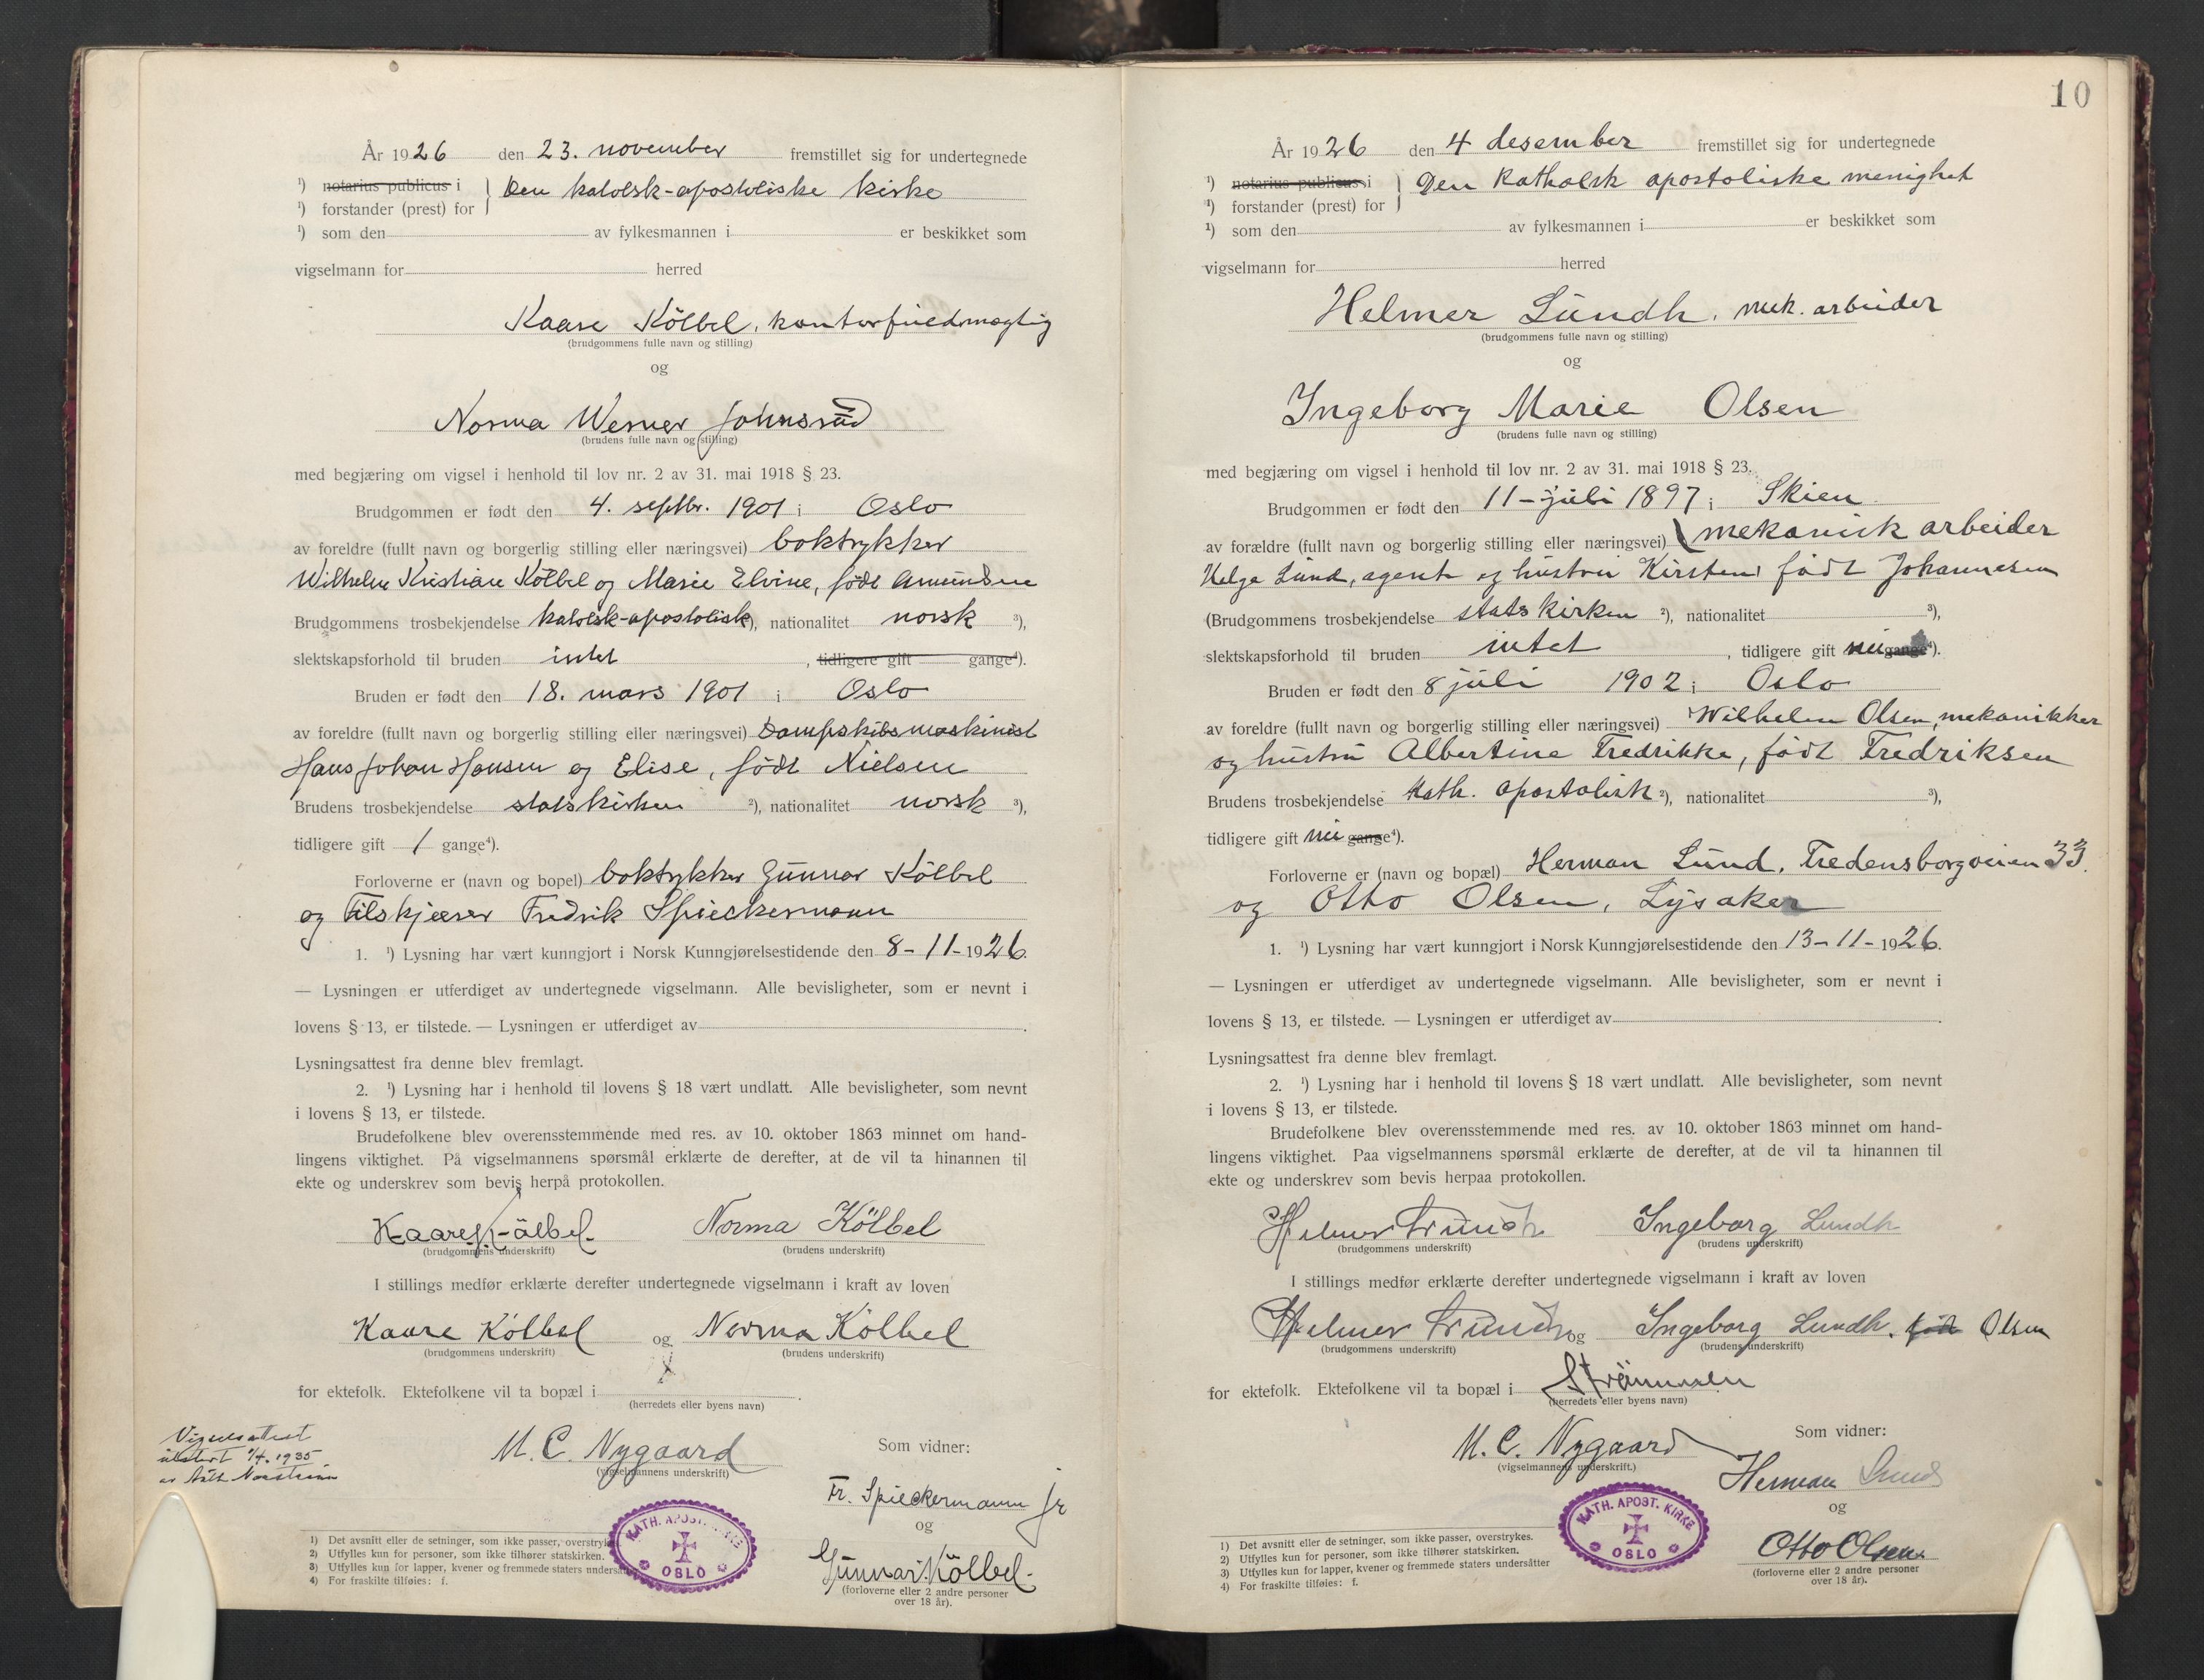 År 1926 den 23. november fremstillet sig for undertegnede
¹) notarius publicus i
¹) forstander (prest) for } Den katolsk-apostoliske kirke
¹) som den av fylkesmannen i er beskikket som
vigselmann for herred
Kaare Kölbel, kontorfuldmægtig
(brudgommens fulle navn og stilling)
og
Norma Werner Johnsrud
(brudens fulle navn og stilling)
med begjæring om vigsel i henhold til lov nr. 2 av 31. mai 1918 § 23.
Brudgommen er født den 4. septbr. 1901 i Oslo
av foreldre (fullt navn og borgerlig stilling eller næringsvei) boktrykker
Wilhelm Kristian Kölbel og Marie Elvine, født Amundsen
Brudgommens trosbekjendelse katolsk-apostolisk ²), nationalitet norsk ³),
slektskapsforhold til bruden intet , tidligere gift gange⁴).
Bruden er født den 18. mars 1901 i Oslo
av foreldre (fullt navn og borgerlig stilling eller næringsvei) Dampskibsmaskinist
Hans Johan Hansen og Elise, født Nielsen
Brudens trosbekjendelse statskirken ²), nationalitet norsk ³),
tidligere gift 1 gange⁴).
Forloverne er (navn og bopel) boktrykker Gunnar Kölbel
og Filskjærer Fredrik Spieckermann
1. ¹) Lysning har vært kunngjort i Norsk Kunngjørelsestidende den 8-11-1926.
— Lysningen er utferdiget av undertegnede vigselmann. Alle bevisligheter, som er nevnt i
lovens § 13, er tilstede. — Lysningen er utferdiget av .
Lysningsattest fra denne blev fremlagt.
2. ¹) Lysning har i henhold til lovens § 18 vært undlatt. Alle bevisligheter, som nevnt
i lovens § 13, er tilstede.
Brudefolkene blev overensstemmende med res. av 10. oktober 1863 minnet om hand-
lingens viktighet. På vigselmannens spørsmål erklærte de derefter, at de vil ta hinannen til
ekte og underskrev som bevis herpå protokollen.
Kaare Kölbel. Norma Kölbel
(brudgommens underskrift) (brudens underskrift)
I stillings medfør erklærte derefter undertegnede vigselmann i kraft av loven
Kaare Kölbel og Norma Kölbel
(brudgommens underskrift) (brudens underskrift)
for ektefolk. Ektefolkene vil ta bopæl i .
(herredets eller byens navn)
Vigselsattest
utstedt 1935
av
M. C. Nygaard
(vigselmannens underskrift)
Som vidner:
Fr. Spieckermann jr
og
Gunnar Kölbel.
(forloverne eller 2 andre personer
over 18 år).
KATH. APOST. KIRKE
OSLO
1) Det avsnitt eller de setninger, som ikke passer, overstryk
2) Utfylles kun for personer, som ikke tilhører statskirken.
3) Utfylles kun for lapper, kvener og fremmede staters unders
4) For fraskilte tilføies: f.
10
År 1926 den 4 desember fremstillet sig for undertegnede
¹) notarius publicus i
¹) forstander (prest) for } Den Katholsk apostoliske menighet
¹) som den av fylkesmannen i er beskikket som
vigselmann for herred
Helmer Lundh, mek. arbeider
(brudgommens fulle navn og stilling)
og
Ingeborg Marie Olsen
(brudens fulle navn og stilling)
med begjæring om vigsel i henhold til lov nr. 2 av 31. mai 1918 § 23.
Brudgommen er født den 11-juli 1897 i Skien
av forældre (fullt navn og borgerlig stilling eller næringsvei) mekanisk arbeider
Helge Lund, agent og hustru Kirsten født Johannesen
(Brudgommens trosbekjendelse statskirken ²), nationalitet ³),
slektskapsforhold til bruden intet , tidligere gift nei gange⁴).
Bruden er født den 8 juli 1902 i Oslo
av foreldre (fullt navn og borgerlig stilling eller næringsvei) Wilhelm Olsen, mekanikker
og hustru Albertine Fredrikke, født Fredriksen
Brudens trosbekjendelse Kath. apostolisk ²), nationalitet ³),
tidligere gift nei gange⁴).
Forloverne er (navn og bopæl) Herman Lund, Fredensborgveien 33.
og Otto Olsen, Lysaker
1. ¹) Lysning har vært kunngjort i Norsk Kunngjørelsestidende den 13-11-1926.
— Lysningen er utferdiget av undertegnede vigselmann. Alle bevisligheter, som er nevnt i
lovens § 13, er tilstede. — Lysningen er utferdiget av .
Lysningsattest fra denne blev fremlagt.
2. ¹) Lysning har i henhold til lovens § 18 vært undlatt. Alle bevisligheter, som nevnt
i lovens § 13, er tilstede.
Brudefolkene blev overensstemmende med res. av 10. oktober 1863 minnet om hand-
lingens viktighet. Paa vigselmannens spørsmål erklærte de derefter, at de vil ta hinannen til
ekte og underskrev som bevis herpaa protokollen.
Helmer Lundh Ingeborg Lundh
(brudgommens underskrift) (brudens underskrift)
I stillings medfør erklærte derefter undertegnede vigselmann i kraft av loven
Helmer Lundh og Ingeborg Lundh. født Olsen
(brudgommens underskrift) (brudens underskrift)
for ektefolk. Ektefolkene vil ta bopæl i Strömmen
(herredets eller byens navn)
M. C. Nygaard
(vigselmannens underskrift.)
Som vidner:
Herman Lund
og
Otto Olsen.
(forloverne eller 2 andre personer
over 18 år).
KATH. APOST. KIRKE
OSLO
1) Det avsnitt eller de setninger, som ikke passer, overstrykes.
2) Utfylles kun for personer, som ikke tilhører statskirken.
3) Utfylles kun for lapper, kvener og fremmede staters undersåtter
4) For fraskilte tilføies: f.